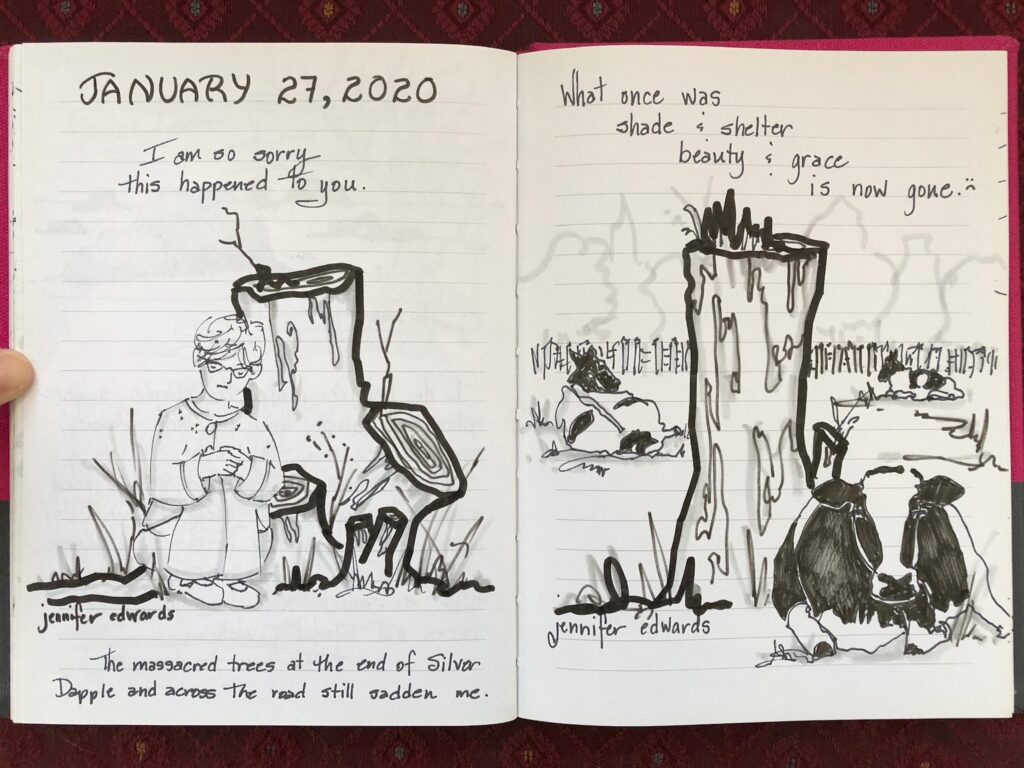 JANUARY 27, 2020
I am so sorry
this happened to you.
jennifer edwards
The massacred trees at the end of Silver
Dapple and across the road still sadden me.
What once was
shade & shelter
beauty & grace
is now gone.
jennifer edwards